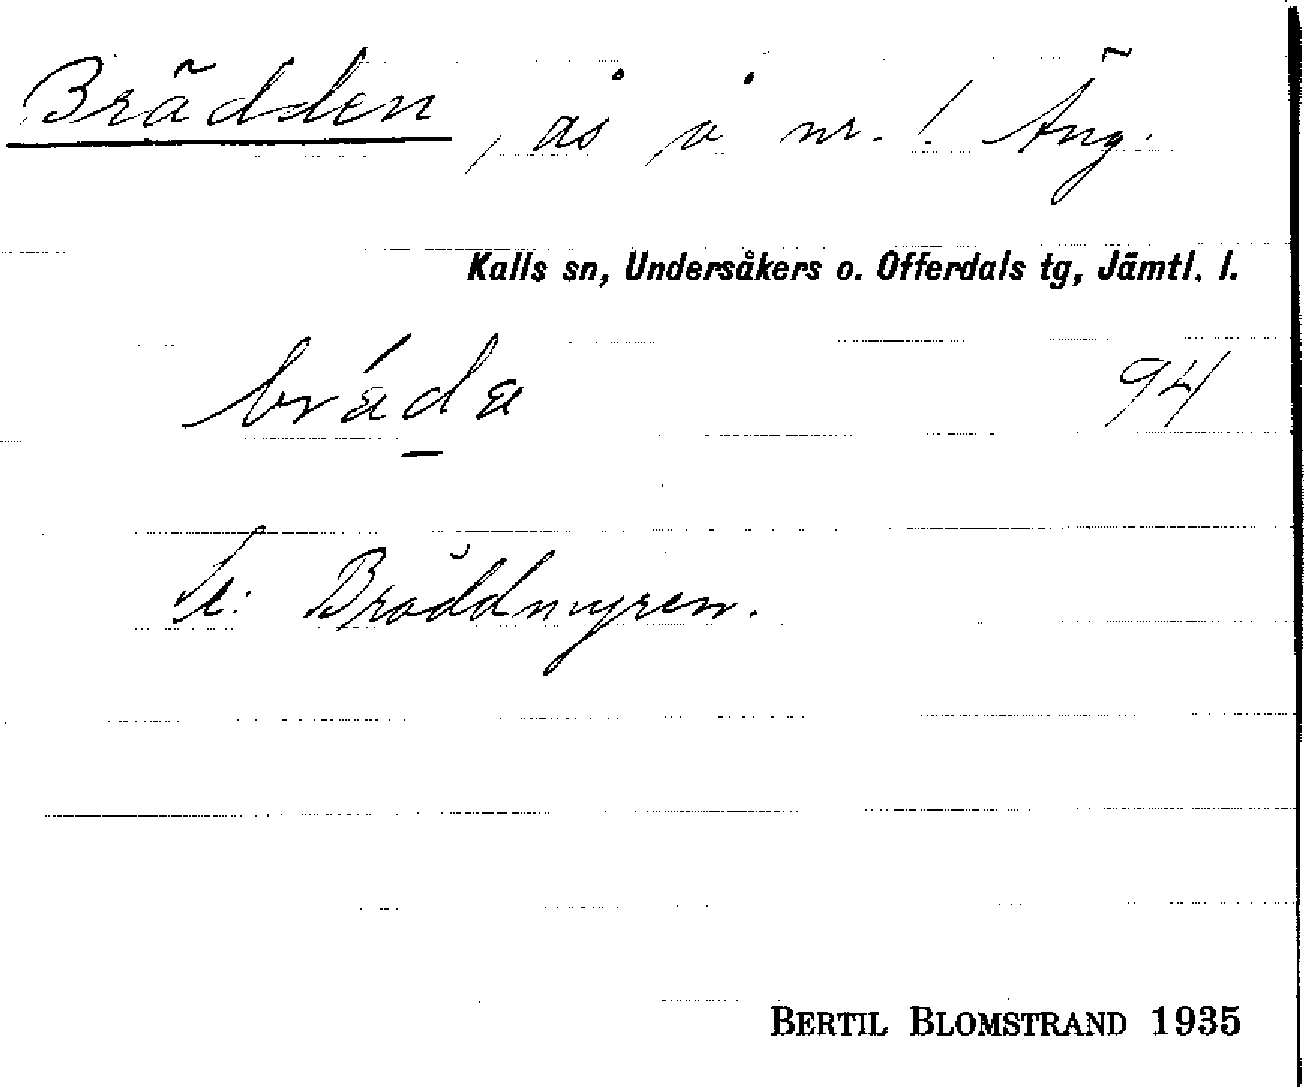 Brädden, ås å nr. 1 Äng.
Kalls sn, Undersåkers o. Offerdals tg, Jämtl. l.
brǽdæ 94
Se: Bräddmyren.
BERTIL BLOMSTRAND 1935